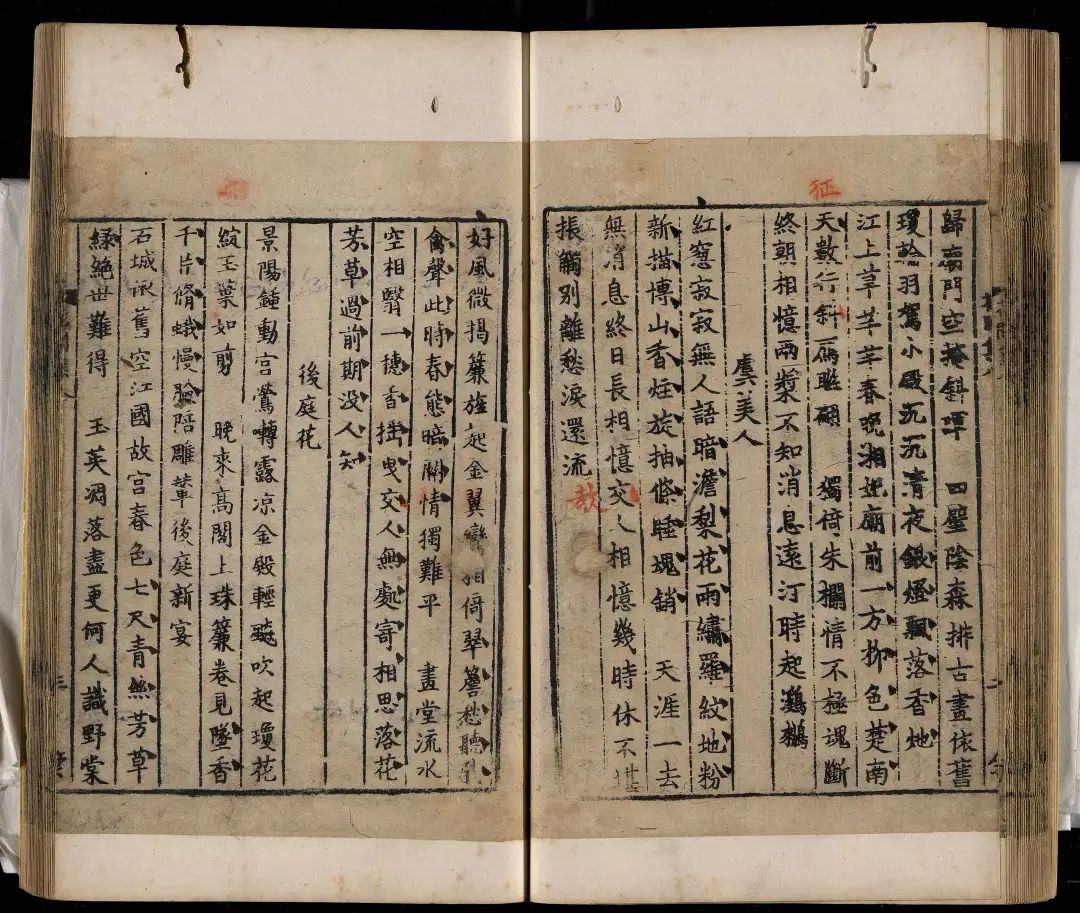 征
歸廟門空掩斜暉　四壁陰森排古畫依舊
瓊輪羽駕小殿沉沉清夜銀燈飄落香灺
江上草芊芊春晚湘妃廟前一方卵色楚南
天數行斜鴈聯翩　獨倚朱欄情不極魂斷
終朝相憶兩槳不知消息遠汀時起鸂鶒
虞美人
紅窓寂寂無人語暗澹梨花雨繡羅紋地粉
新描博山香炷旋抽條睡魂銷　天涯一去
無消息終日長相憶交人相憶幾時休不堪
振觸別離愁淚還流
好風微揭簾旌起金翼鸞相倚翠簷愁聽乳
禽聲此時春態暗關情獨難平　畫堂流水
空相翳一穗香摇曳交人無處寄相思落花
芳草過前期没人知
後庭花
景陽鍾動宮鶯囀露凉金殿輕飇吹起瓊花
綻玉葉如剪　晚來高閣上珠簾卷見墜香
千片脩蛾慢臉陪雕輦後庭新宴
石城依舊空江國故宮春色七尺青絲芳草
緑絶世難得　玉英凋落盡更何人識野棠